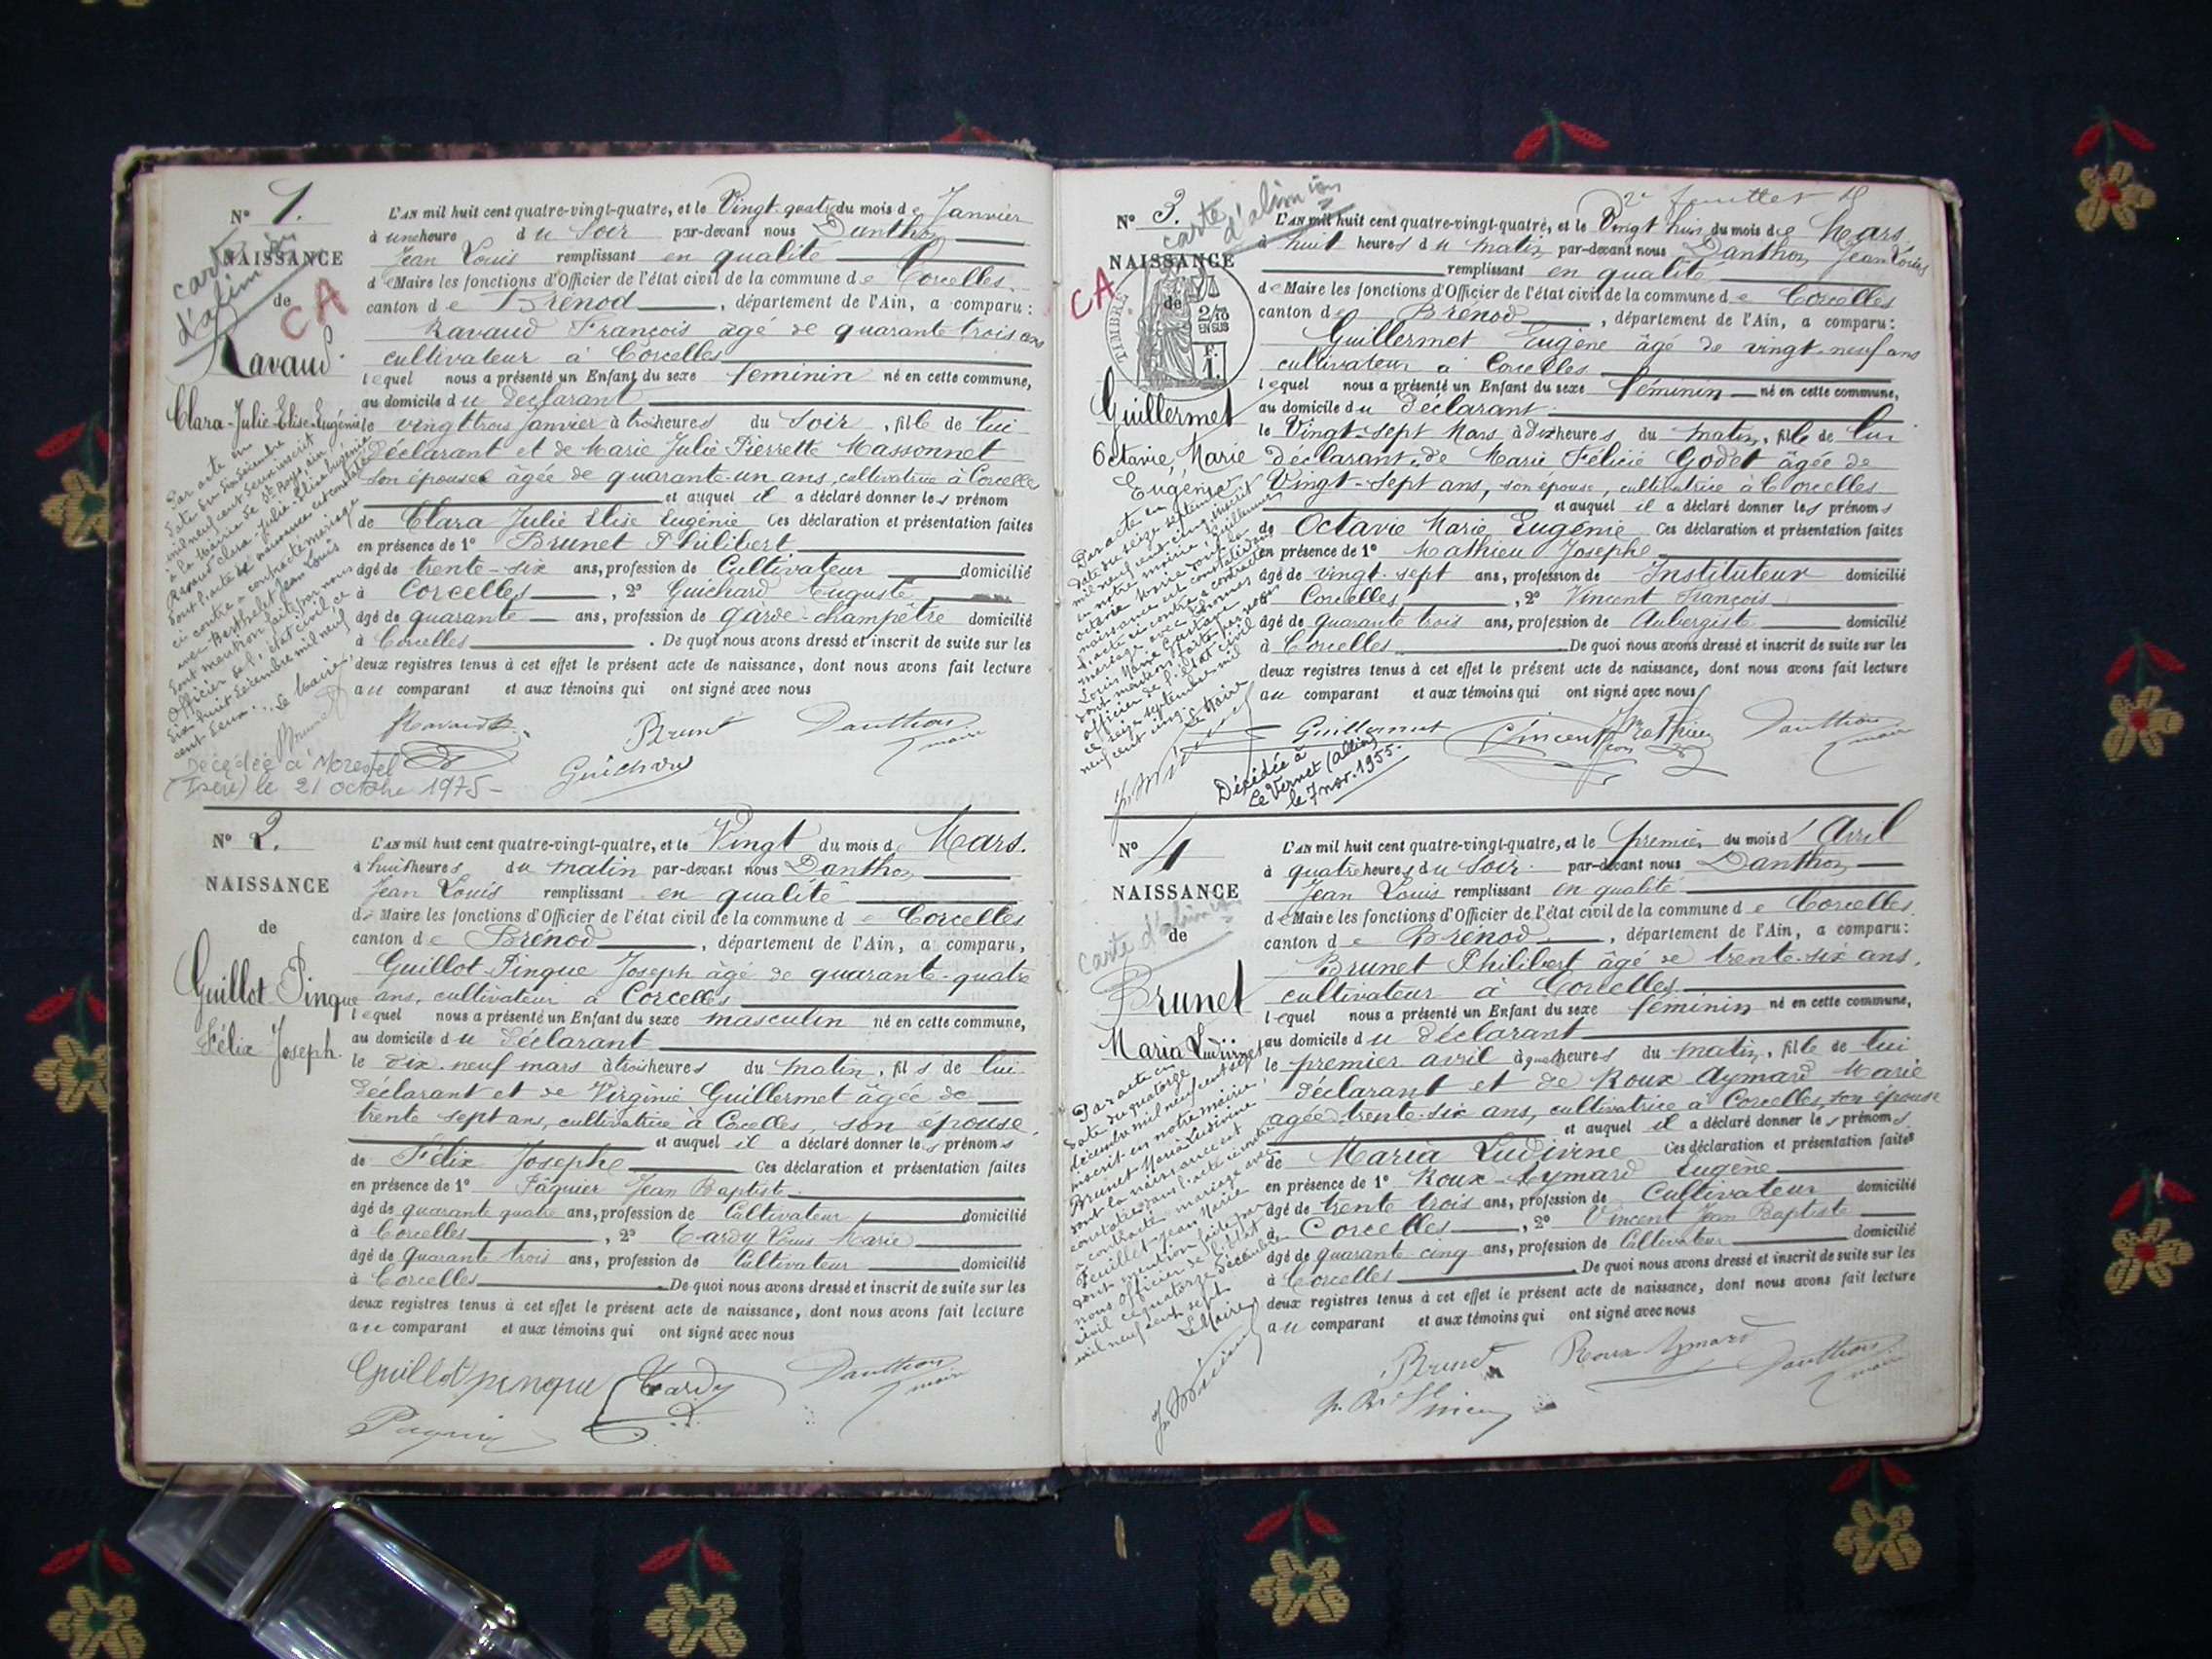 N° 1.
NAISSANCE
de
carte
d'alim
CA
Ravaud
Clara-Julie-Elise-Eugénie
L'AN mil huit cent quatre-vingt-quatre, et le Vingt-quatre du mois de Janvier
à une heure du Soir par-devant nous Danthon
Jean Louis remplissant en qualité
de Maire les fonctions d'Officier de l'état civil de la commune de Corcelles.
canton de Brénod, département de l'Ain, a comparu:
Ravaud François âgé de quarante trois ans
cultivateur à Corcelles
lequel nous a présenté un Enfant du sexe féminin né en cette commune,
au domicile du déclarant
le vingt trois janvier à trois heures du Soir, fille de lui
déclarant et de Marie Julie Pierrette Massonnet
son épouse âgée de quarante-un ans, cultivatrice à Corcelles
et auquel il a déclaré donner les prénom
de Clara Julie Elise Eugénie Ces déclaration et présentation faites
en présence de 1° Brunet Philibert
âgé de trente-six ans, profession de Cultivateur domicilié
à Corcelles, 2° Guichard Auguste
âgé de quarante ans, profession de garde-champêtre domicilié
à Corcelles. De quoi nous avons dressé et inscrit de suite sur les
deux registres tenus à cet effet le présent acte de naissance, dont nous avons fait lecture
au comparant et aux témoins qui ont signé avec nous
Par acte en
date du six décembre
mil neuf cent deux inscrit
à la Mairie de
Ravaud Clara-Julie-Elise-Eugénie
dont l'acte de naissance est constaté
ci contre a contracté mariage
avec Berthelet Jean Louis
Dont mention faite par nous
Officier de l'état civil ce
dix huit décembre mil neuf
cent deux. Le Maire,
Brunet
Ravaud Brunet Danthon
maire
Guichard
Décédée à Morestel
(Isère) le 21 octobre 1975-
N° 2.
NAISSANCE
de
Guillot-Pingue
Félix Joseph.
L'AN mil huit cent quatre-vingt-quatre, et le Vingt du mois de Mars.
à huit heures du matin par-devant nous Danthon
Jean Louis remplissant en qualité
de Maire les fonctions d'Officier de l'état civil de la commune de Corcelles
canton de Brénod, département de l'Ain, a comparu,
Guillot-Pingue Joseph âgé de quarante-quatre
ans, cultivateur à Corcelles
lequel nous a présenté un Enfant du sexe masculin né en cette commune,
au domicile du déclarant
le dix-neuf mars à trois heures du matin, fils de lui
déclarant et de Virginie Guillermet âgée de
trente sept ans, cultivatrice à Corcelles, son épouse,
et auquel il a déclaré donner les prénoms
de Félix Josephe Ces déclaration et présentation faites
en présence de 1° Pâquier Jean Baptiste
âgé de quarante quatre ans, profession de Cultivateur domicilié
à Corcelles, 2° Tardy Louis Marie
âgé de quarante trois ans, profession de Cultivateur domicilié
à Corcelles De quoi nous avons dressé et inscrit de suite sur les
deux registres tenus à cet effet le présent acte de naissance, dont nous avons fait lecture
au comparant et aux témoins qui ont signé avec nous
Guillot pingue Tardy Danthon
maire
2e feuillet
N° 3.
carte
d'alimion
NAISSANCE
de
CA
TIMBRE
2/10
EN SUS
F.
1.
Guillermet
Octavie, Marie
Eugénie
L'AN mil huit cent quatre-vingt-quatre, et le Vingt huit du mois de Mars
à huit heures du matin par-devant nous Danthon Jean Louis
remplissant en qualité
de Maire les fonctions d'Officier de l'état civil de la commune de Corcelles
canton de Brénod, département de l'Ain, a comparu:
Guillermet Eugène âgé de vingt-neuf ans
cultivateur à Corcelles
lequel nous a présenté un Enfant du sexe féminin né en cette commune,
au domicile du déclarant
le Vingt-sept Mars à dix heures du matin, fille de lui
déclarant, de Marie Félicie Godet âgée de
Vingt-sept ans, son épouse, cultivatrice à Corcelles
et auquel il a déclaré donner les prénoms
de Octavie Marie Eugénie Ces déclaration et présentation faites
en présence de 1° Mathieu Josephe
âgé de vingt-sept ans, profession de Instituteur domicilié
à Corcelles, 2° Vincent François
âgé de quarante trois ans, profession de Aubergiste domicilié
à Corcelles De quoi nous avons dressé et inscrit de suite sur les
deux registres tenus à cet effet le présent acte de naissance, dont nous avons fait lecture
au comparant et aux témoins qui ont signé avec nous
Par acte en
date du seize septembre
mil neuf cent cinq inscrit
en notre mairie, Guillermet
octavie Marie dont la
naissance est constatée dans
l'acte ci-contre a contracté
mariage avec Thomas
Louis Marie Gustave
dont mention faite par nous
officier de l'état civil
ce seize septembre mil
neuf cent cinq.
Le Maire
Guillermet Vincent Mathieu Danthon
maire
Décédée à
Le Vernet (Allier)
le 7 nov. 1955.
N° 4
NAISSANCE
de
carte d'alimion
Brunet
Maria Ludivine
L'AN mil huit cent quatre-vingt-quatre, et le premier du mois d'Avril
à quatre heures du Soir par-devant nous Danthon
Jean Louis remplissant en qualité
de Maire les fonctions d'Officier de l'état civil de la commune de Corcelles
canton de Brénod, département de l'Ain, a comparu:
Brunet Philibert âgé de trente-six ans,
cultivateur à Corcelles
lequel nous a présenté un Enfant du sexe féminin né en cette commune,
au domicile du déclarant
le premier avril à quatre heures du matin, fille de lui
déclarant et de Roux Aymard Marie
agée trente-six ans, cultivatrice à Corcelles, son épouse
et auquel il a déclaré donner les prénoms
de Maria Ludivine Ces déclaration et présentation faites
en présence de 1° Roux-Aymard Eugène
âgé de trente trois ans, profession de Cultivateur domicilié
à Corcelles, 2° Vincent Jean Baptiste
âgé de quarante cinq ans, profession de Cultivateur domicilié
à Corcelles De quoi nous avons dressé et inscrit de suite sur les
deux registres tenus à cet effet le présent acte de naissance, dont nous avons fait lecture
au comparant et aux témoins qui ont signé avec nous
Par acte en
date du quatorze
décembre mil neuf cent sept
inscrit en notre mairie,
Brunet Maria Ludivine
dont la naissance est
constatée dans l'acte ci-contre
a contracté mariage avec
Feuillet Jean Marie
dont mention faite par
nous officier de l'état
civil ce quatorze décembre
mil neuf cent sept
Le Maire
Brunet Roux Aymard Danthon
maire